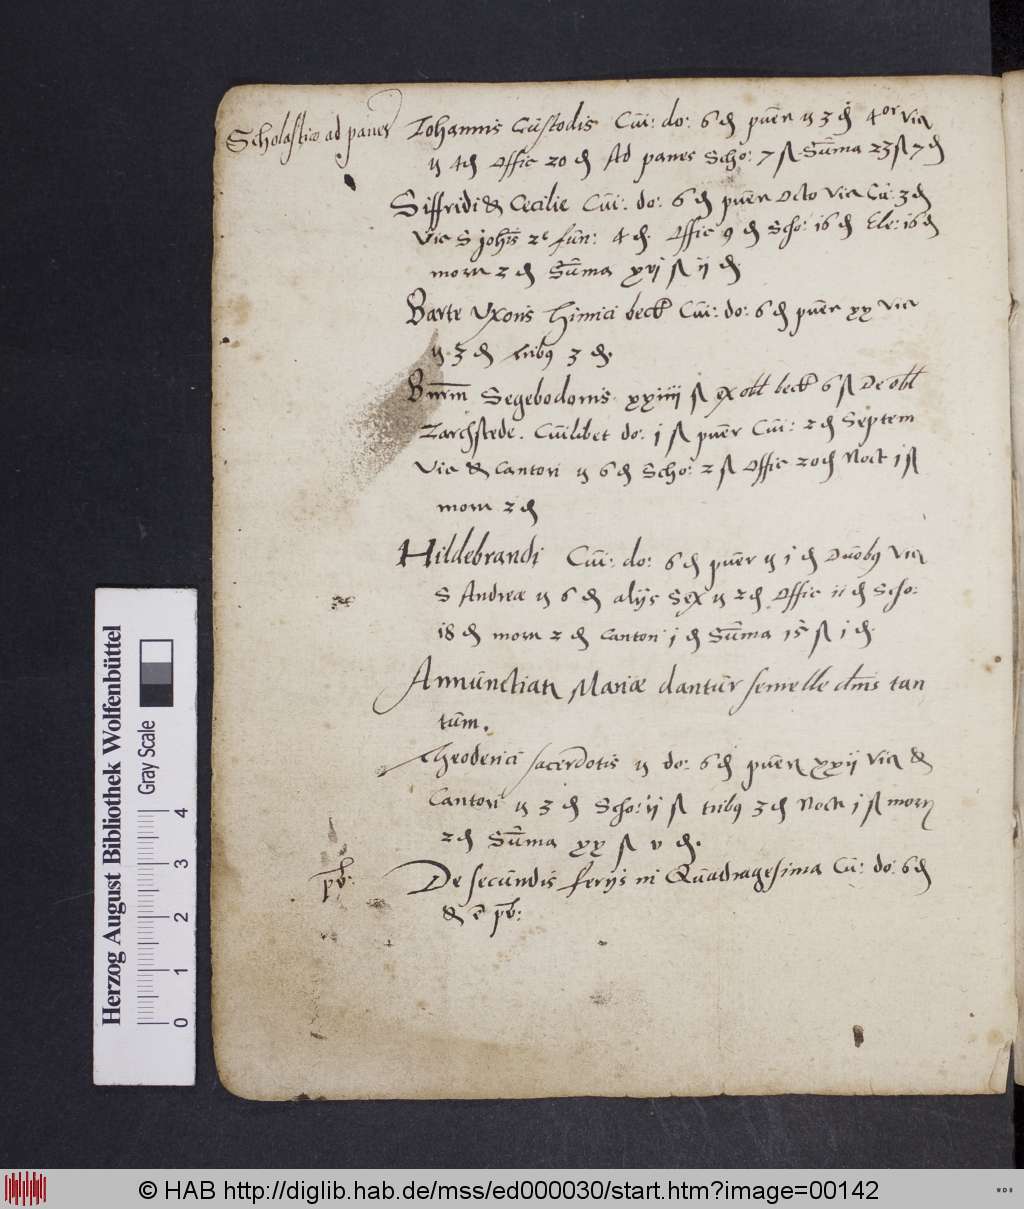 Scholasticæ ad panes
Johannis Custodis Cui: do: 6 ₰ puer 3 ₰ 4or vic
4 ₰ Offic 20 ₰ Ad panes Scho: 7 ß Sum̄a 23 ß 7 ₰
Siffridi & Cecilie Cui: do: 6 ₰ puer octo vic Cui: 3 ₰
Vic S Joh̄is fun: 4 ₰ Offic 9 ₰ Scho: 16 ₰ Ele: 16 ₰
morn 2 ₰ Sum̄a xvj ß ij ₰
Barte Uxoris Hinrici beck Cui: do: 6 ₰ puer xx vic
3 ₰ tribus 3 ₰.
Segebodonis xxiiij ß ex obl beck 6 ß De obl
Zarchstede. Cuilibet do: j ß puer Cui: 2 ₰ Septem
Vic & Cantori 6 ₰ Scho: 2 ß Offic 20 ₰ Noct j ß
morn 2 ₰
Hildebrandi Cui: do: 6 ₰ puer j ₰ Duobus vic
S Andreæ 6 ₰ alijs Sex 2 ₰ Offic ii ₰ Scho:
18 ₰ morn 2 ₰ Cantori j ₰ Sum̄a 15 ß j ₰
Annunciat Mariæ dantur semelle dn̄is tan
tum.
Theoderici sacerdotis do: 6 ₰ puer xxij vic &
Cantori 3 ₰ Scho: ij ß tribus 3 ₰ Noct j ß morn
2 ₰ Sum̄a xx ß v ₰.
pb: De secundis ferijs in Quadragesima Cu: do: 6 ₰
& ē pb:
Herzog August Bibliothek Wolfenbüttel
Gray Scale
0 1 2 3 4
© HAB http://diglib.hab.de/mss/ed000030/start.htm?image=00142